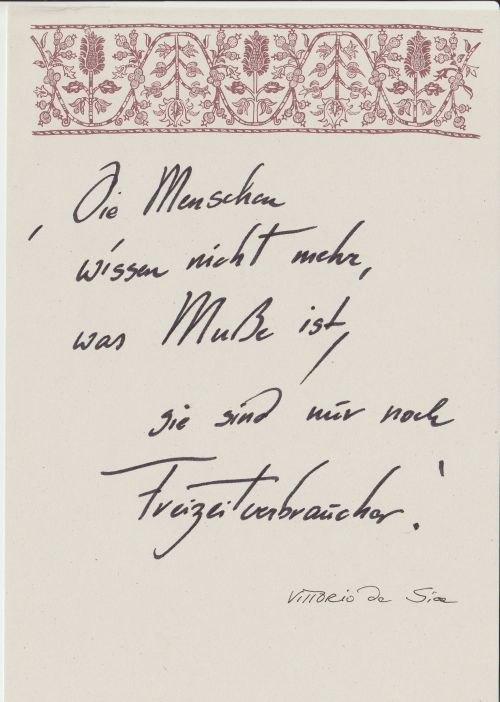 ‚Die Menschen
wissen nicht mehr,
was Muße ist,
sie sind nur noch
Freizeitverbraucher.'
Vittorio de Sica